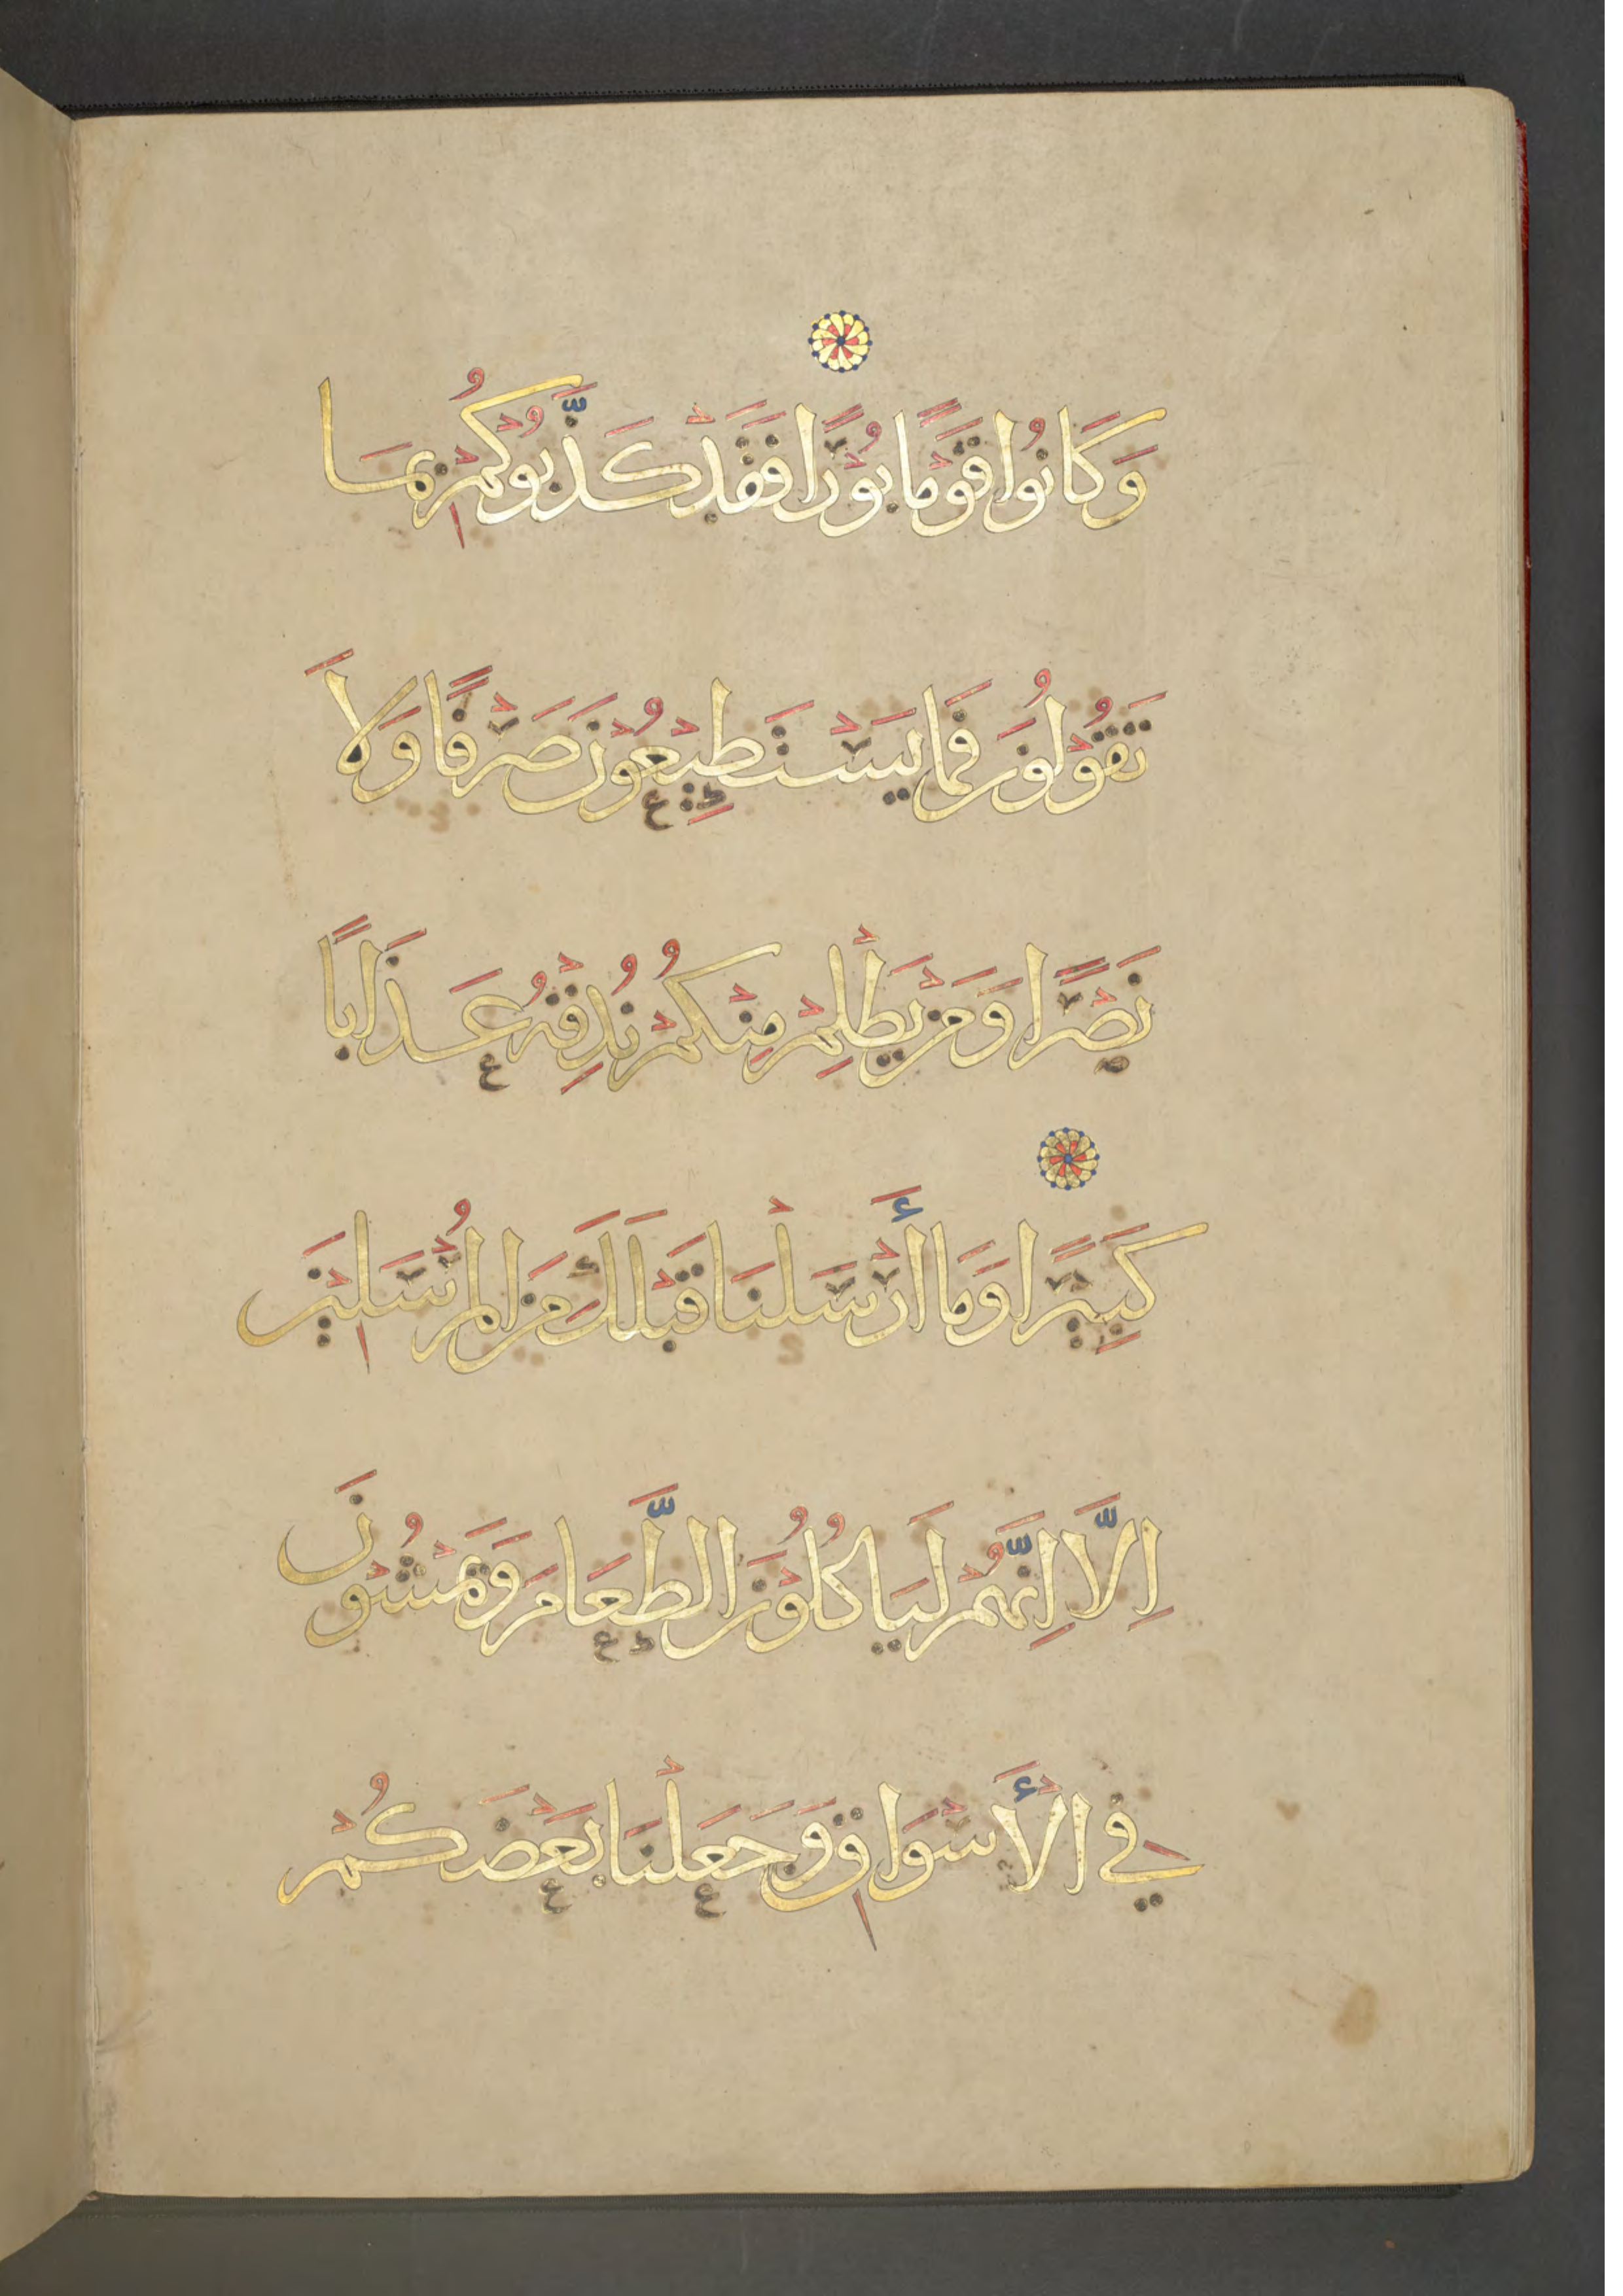 وَكَانُوا قَوْمًا بُوْرًا فَقَدْ كَذَّبُوْكُمْ بِمَا
تَقُوْلُوْنَ فَمَا يَسْتَطِيْعُوْنَ صَرْفًا وَلَا
نَصْرًا وَمَنْ يَظْلِمْ مِنْكُمْ نُذِقْهُ عَذَابًا
كَبِيْرًا وَمَا أَرْسَلْنَا قَبْلَكَ مِنَ الْمُرْسَلِيْنَ
اِلَّا اِنَّهُمْ لَيَاكُلُوْنَ الطَّعَامَ وَيَمْشُوْنَ
فِيْ الْأَسْوَاقِ وَجَعَلْنَا بَعْضَكُمْ